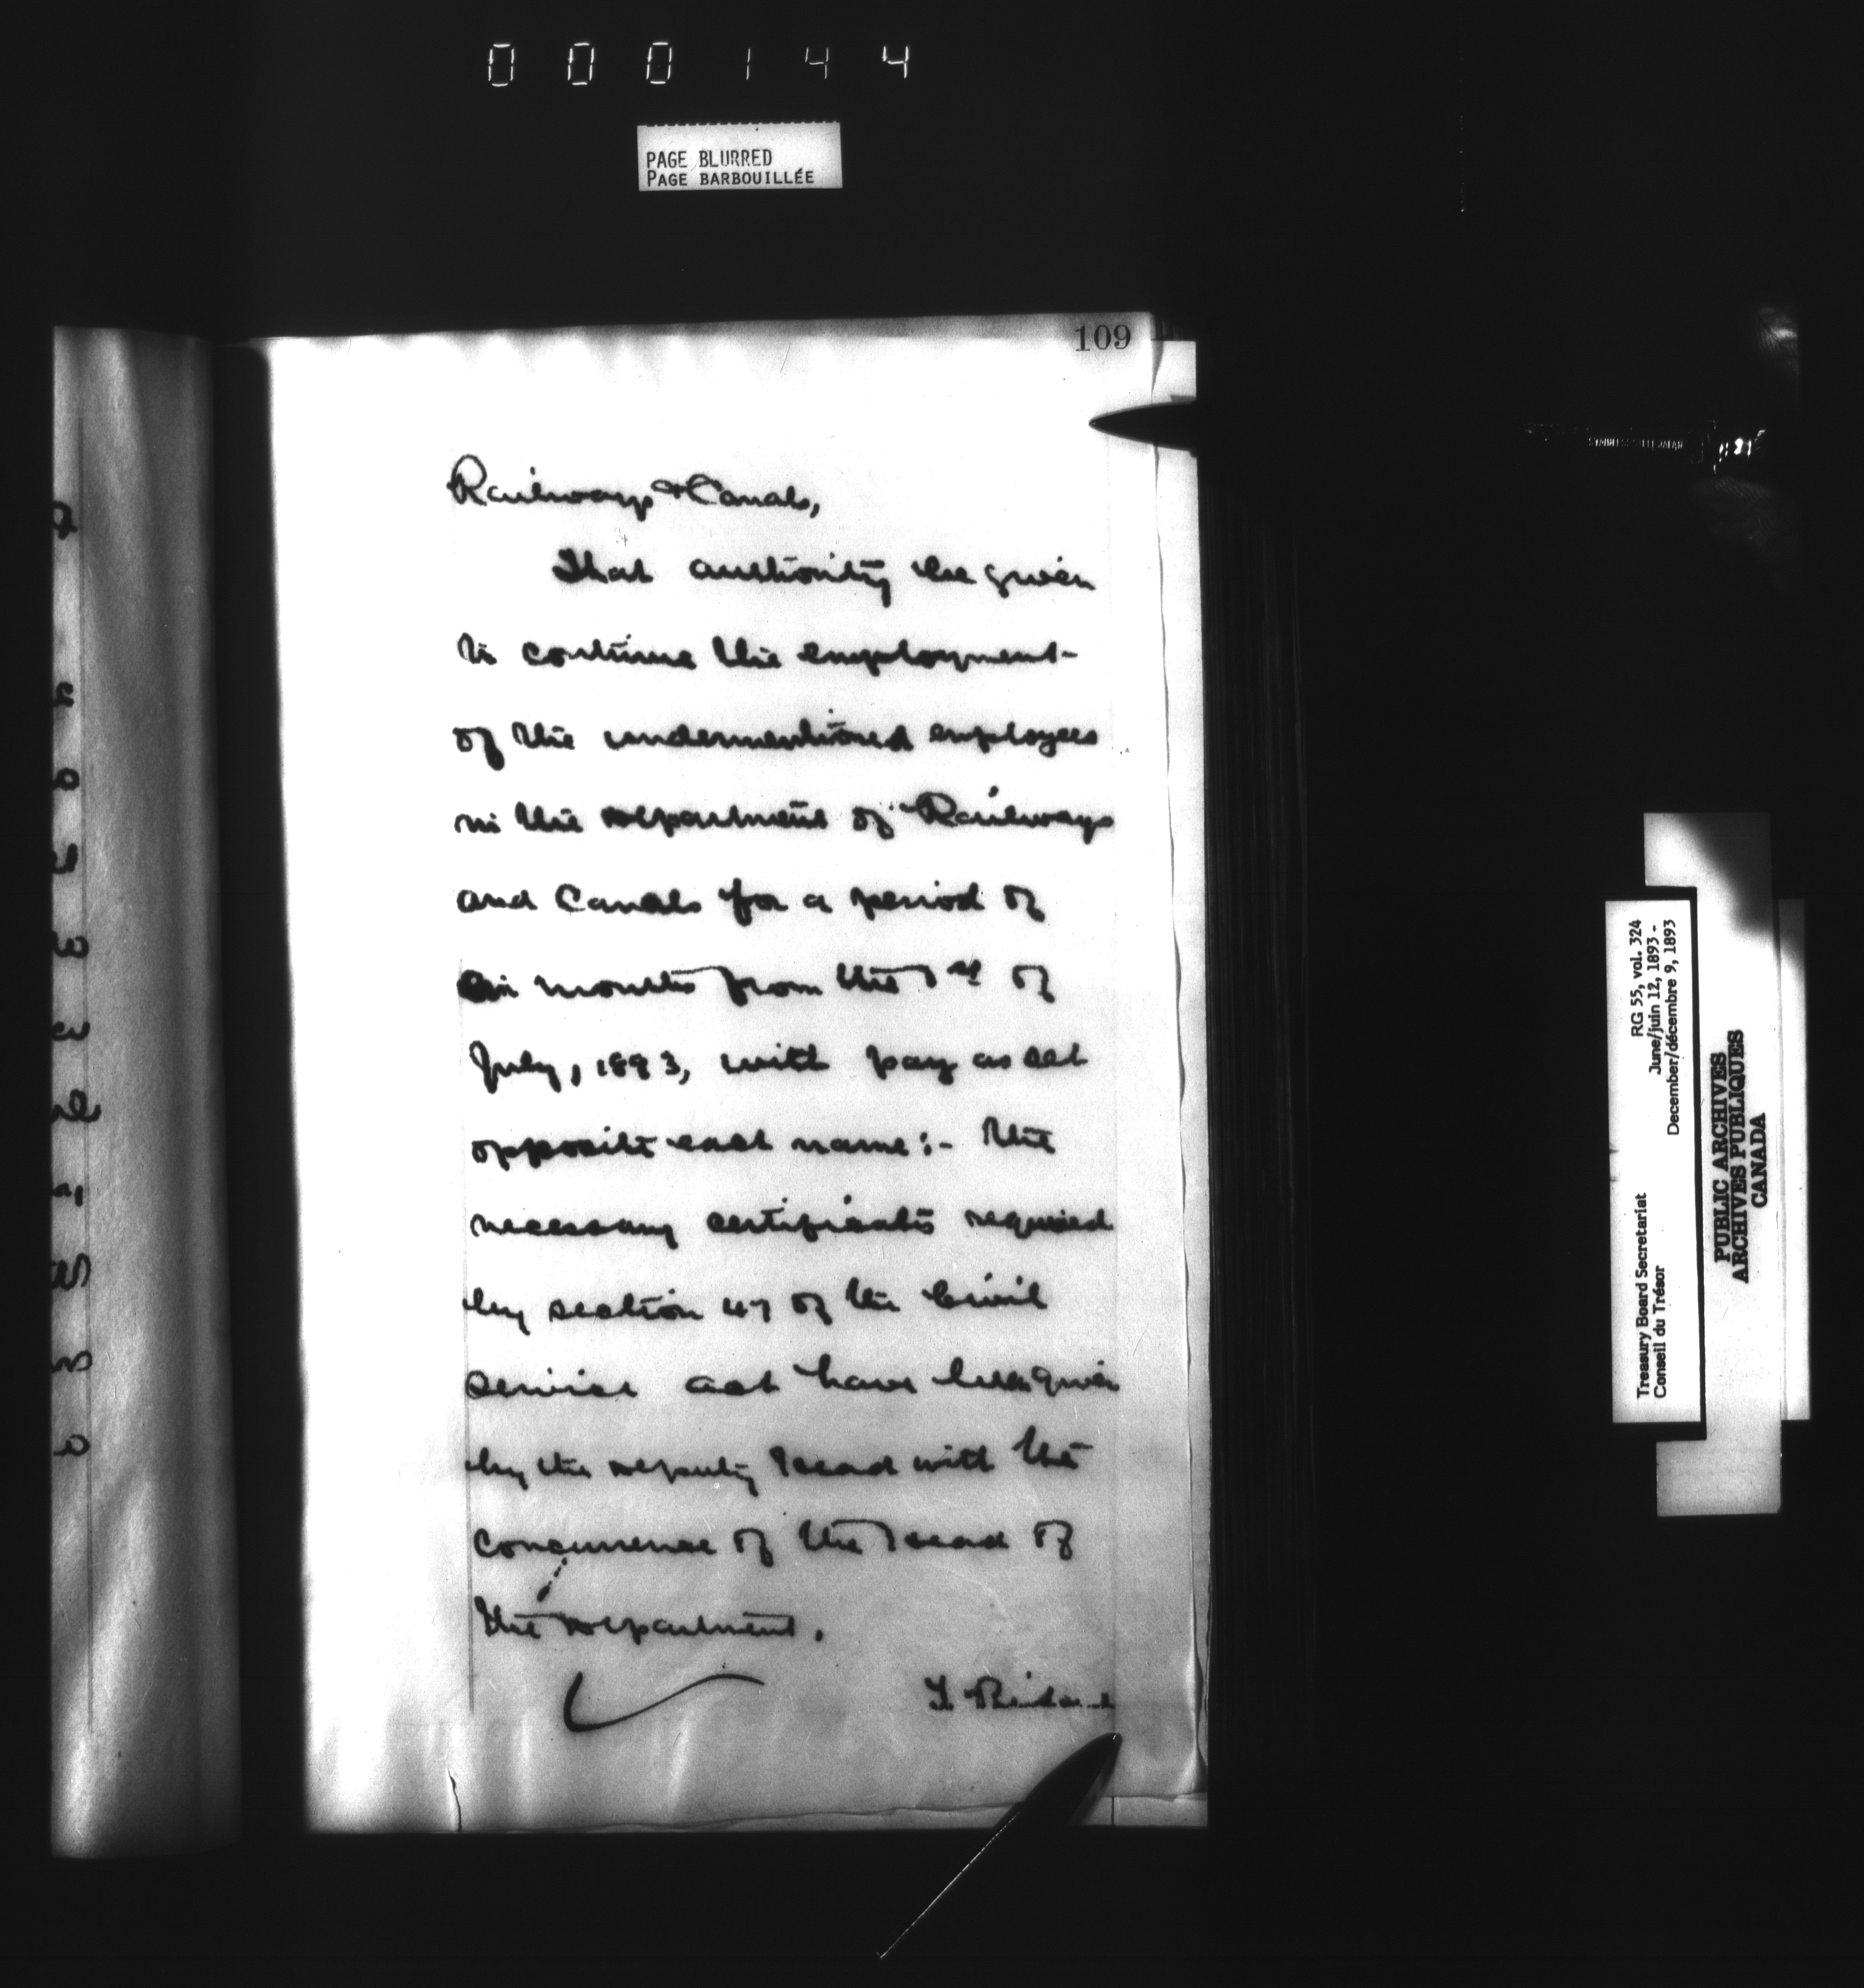 000144
PAGE BLURRED
PAGE BARBOUILLÉE
109
Railways & Canals,
That authority be given
to continue the employment
of the undermentioned employees
in the department of Railways
and Canals for a period of
six months from the 1st of
July, 1893, with pay as set
opposite each name:- the
necessary certificates required
by section 47 of the Civil
Service act have been given
by the deputy head with the
concurrence of the head of
the department.
RG 55, vol. 324
June/juin 12, 1893 -
December/décembre 9, 1893
Treasury Board Secretariat
Conseil du Trésor
PUBLIC ARCHIVES
ARCHIVES PUBLIQUES
CANADA